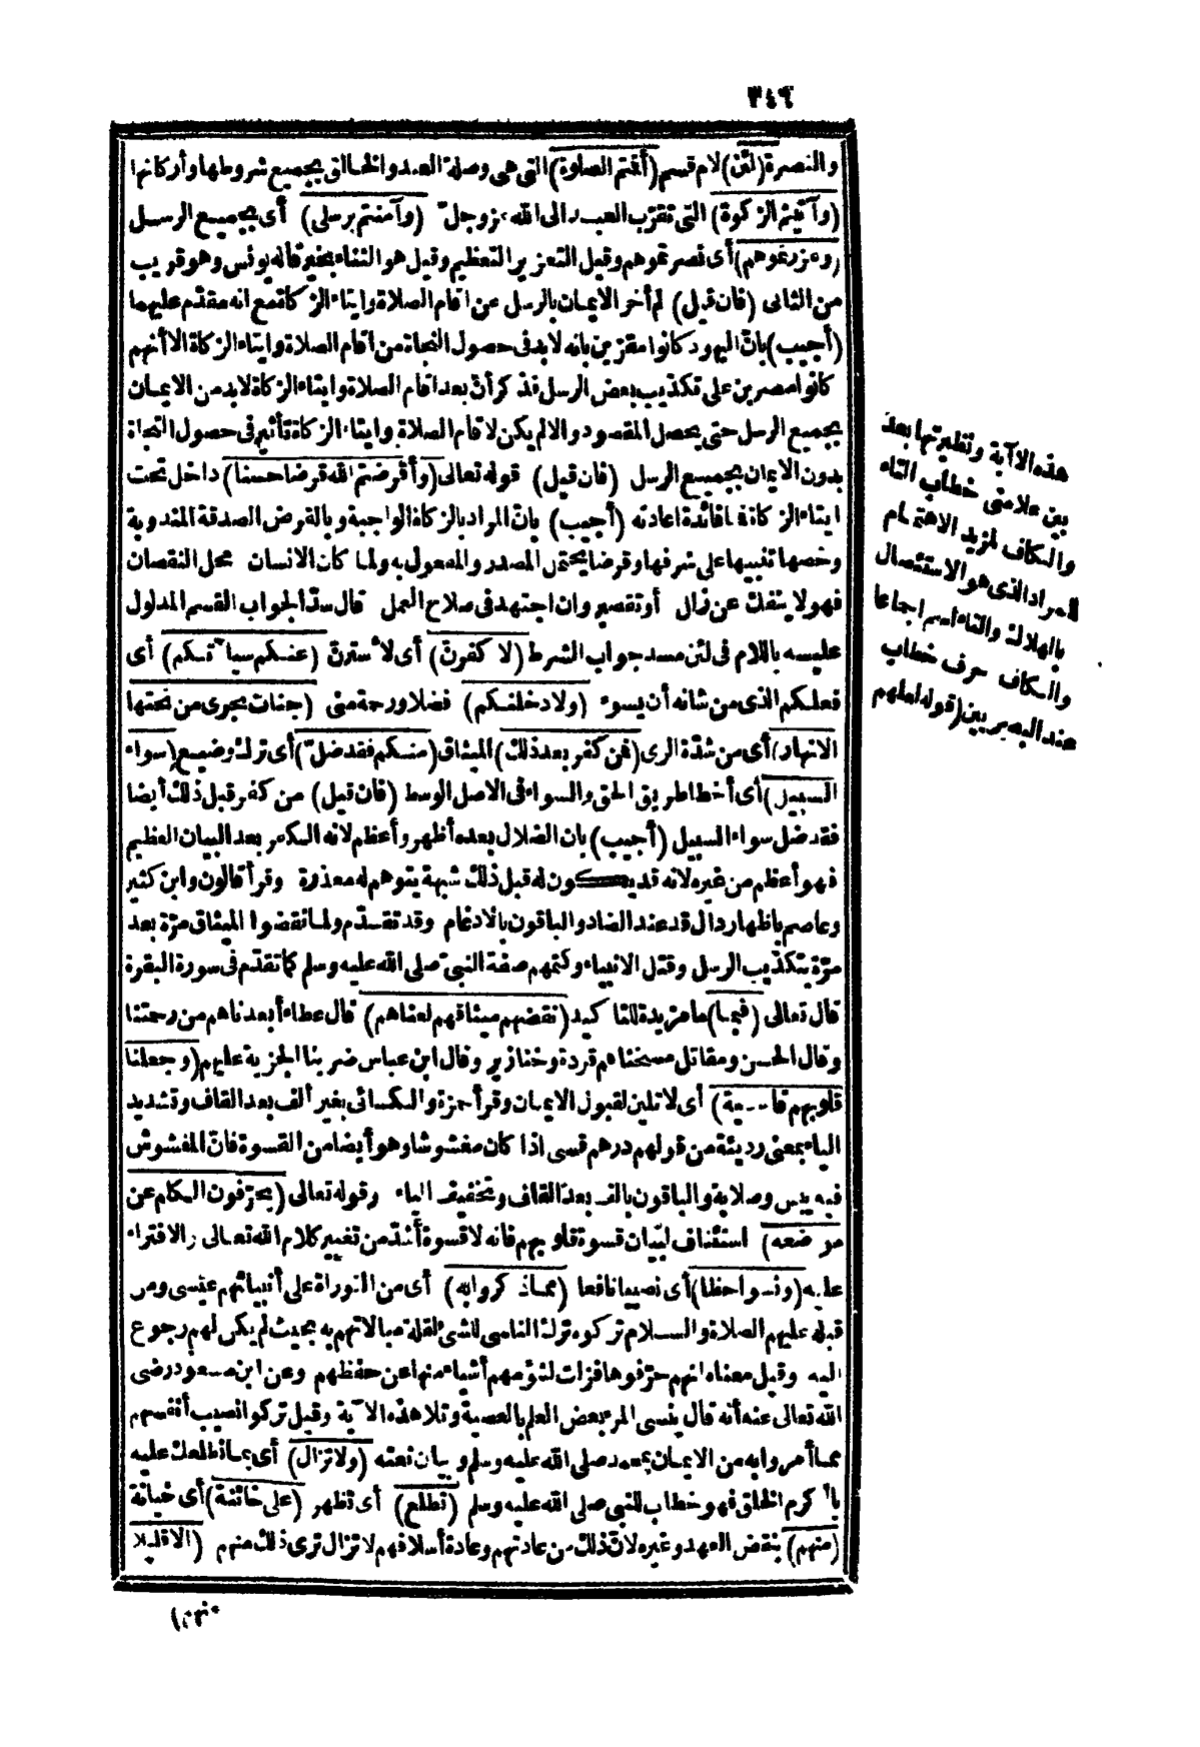 ٣٤٩
والنصرة (لئن) لام قسم (أقمتم الصلوة) التى هى وصلة العبد والخالق بجميع شروطها وأركانها
(وآتيتم الزكوة) التى تقرّب العبد الى الله عزوجل (وآمنتم برسلى) أى بجميع الرسل
(وعزرتموهم) أى نصرتموهم وقيل التعزير التعظيم وقيل هو الثناء بخير قاله يونس وهو قريب
من الثانى (فان قيل) لم أخر الايمان بالرسل عن اقام الصلاة وايتاء الزكاة مع انه مقدّم عليهما
(أجيب) بانّ اليهود كانوا مقرّين بانه لابد فى حصول النجاة من اقام الصلاة وايتاء الزكاة الا أنهم
كانوا مصرين على تكذيب بعض الرسل فذكر أنّ بعد اقام الصلاة وايتاء الزكاة لابد من الايمان
بجميع الرسل حتى يحصل المقصود والا لم يكن لاقام الصلاة وايتاء الزكاة تأثير فى حصول النجاة
بدون الايمان بجميع الرسل (فان قيل) قوله تعالى (وأقرضتم الله قرضا حسنا) داخل تحت
ايتاء الزكاة فما فائدة اعادته (أجيب) بانّ المراد بالزكاة الواجبة وبالقرض الصدقة المندوبة
وخصها تنبيها على شرفها وقرضا يحتمل المصدر والمفعول به ولما كان الانسان محل النقصان
فهو لا ينفك عن زلل أو تقصير وان اجتهد فى صلاح العمل قال سدّ الجواب القسم المدلول
عليه باللام فى لئن مسد جواب الشرط (لا كفرنّ) أى لأسترنّ (عنكم سيآتكم) أى
فعلكم الذى من شانه أن يسوء (ولادخلنكم) فضلا ورحة منى (جنات تجرى من تحتها
الانهار) أى من شدّة الرى (فمن كفر بعد ذلك) الميثاق (منكم فقد ضل) أى ترك وضيع (سواء
السبيل) أى أخطأ طريق الحق والسواء فى الاصل الوسط (فان قيل) من كفر قبل ذلك أيضا
فقد ضل سواء السبيل (أجيب) بان الضلال بعده أظهر وأعظم لانه الكفر بعد البيان العظيم
فهو أعظم من غيره لانه قد يكون له قبل ذلك شبهة يتوهم له معذرة وقرأ قالون وابن كثير
وعاصم باظهار دال قد عند الضاد والباقون بالادغام وقد تقدّم ولما نقضوا الميثاق مرّة بعد
مرّة بتكذيب الرسل وقتل الانبياء وكتمهم صفة النبىّ صلى الله عليه وسلم كما تقدّم فى سورة البقرة
قال تعالى (فبما) ما مزيدة للتاكيد (نقضهم ميثاقهم لعناهم) قال عطاء أبعدناهم من رحمتنا
وقال الحسن ومقاتل مسخناهم قردة وخنازير وقال ابن عباس ضربنا الجزية عليهم (وجعلنا
قلوبهم قاسية) أى لا تلين لقبول الايمان وقرأ حمزة والكسائى بغير ألف بعد القاف وتشديد
الياء بمعنى رديئة من قولهم درهم قسى اذا كان مغشوشا وهو أيضا من القسوة فانّ المغشوش
فيه يبس وصلابة والباقون بالف بعد القاف وتخفيف الياء وقوله تعالى (يحرّفون الكلم عن
مواضعه) استئناف لبيان قسوة قلوبهم فانه لا قسوة أشدّ من تغيير كلام الله تعالى والافتراء
عليه (ونسوا حظا) أى نصيبا نافعا (مما ذكروا به) أى من التوراة على أنبيائهم عيسى ومن
قبله عليهم الصلاة والسلام تركوه ترك الناسى للشئ لقلة مبالاتهم به بحيث لم يكن لهم رجوع
اليه وقيل معناه انهم حرّفوها فزلت لشؤمهم أشياء منها عن حفظهم وعن ابن مسعود رضى
الله تعالى عنه أنه قال ينسى المرء بعض العلم بالمعصية وتلا هذه الآية وقيل تركوا نصيب أنفسهم
مما أمروا به من الايمان بمحمد صلى الله عليه وسلم وبيان نعته (ولا تزال) أى بما نطلعك عليه
يا أكرم الخلق فهو خطاب للنبى صلى الله عليه وسلم (تطلع) أى تظهر (على خائنة) أى خيانة
(منهم) بنقض العهد وغيره لانّ ذلك من عادتهم وعادة أسلافهم لا تزال ترى ذلك منهم (الا قليلا
هذه الآية ونظيرتها بعد
بين علامتى خطاب التاء
والكاف لمزيد الاهتمام
المراد الذى هو الاستئصال
بالهلاك والتاء اسم اجماعا
والكاف حرف خطاب
عند البصريين (قوله لعلهم